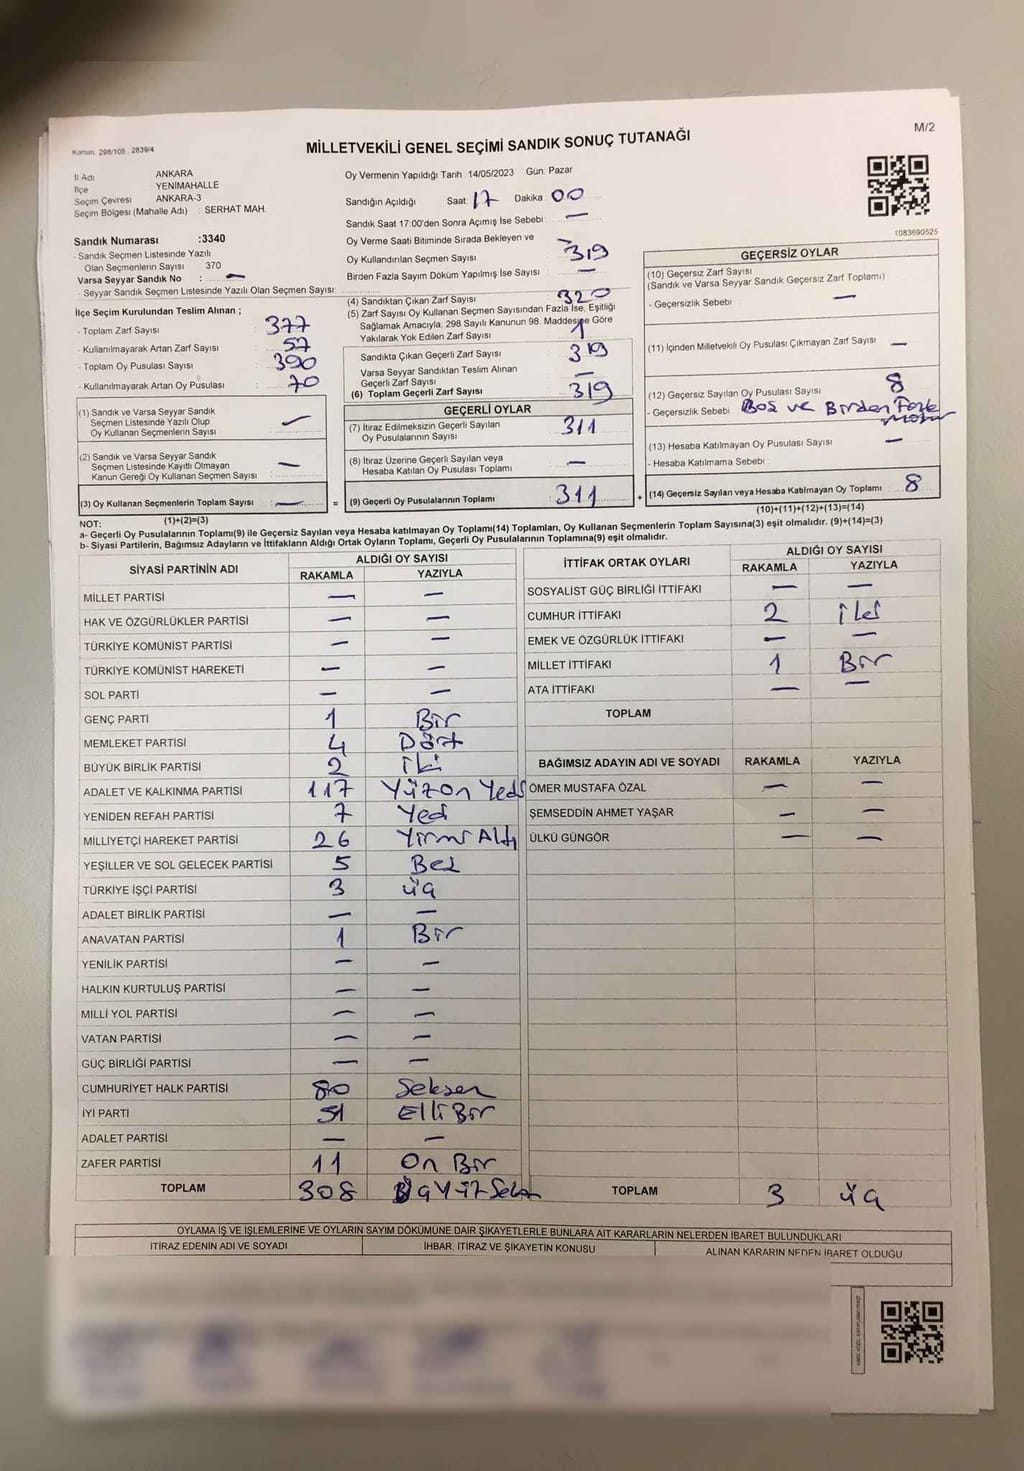 Kanun: 298/105, 2839/4
M/2
MİLLETVEKİLİ GENEL SEÇİMİ SANDIK SONUÇ TUTANAĞI
İl Adı ANKARA
İlçe YENİMAHALLE
Seçim Çevresi ANKARA-3
Seçim Bölgesi (Mahalle Adı) : SERHAT MAH.
Sandık Numarası :3340
- Sandık Seçmen Listesinde Yazılı
Olan Seçmenlerin Sayısı 370
Varsa Seyyar Sandık No : —
- Seyyar Sandık Seçmen Listesinde Yazılı Olan Seçmen Sayısı:
İlçe Seçim Kurulundan Teslim Alınan ;
- Toplam Zarf Sayısı : 377
- Kullanılmayarak Artan Zarf Sayısı : 57
- Toplam Oy Pusulası Sayısı : 390
- Kullanılmayarak Artan Oy Pusulası : 70
(1) Sandık ve Varsa Seyyar Sandık
Seçmen Listesinde Yazılı Olup
Oy Kullanan Seçmenlerin Sayısı —
(2) Sandık ve Varsa Seyyar Sandık
Seçmen Listesinde Kayıtlı Olmayan
Kanun Gereği Oy Kullanan Seçmen Sayısı : —
(3) Oy Kullanan Seçmenlerin Toplam Sayısı : —
(1)+(2)=(3)
Oy Vermenin Yapıldığı Tarih :14/05/2023 Gün: Pazar
Sandığın Açıldığı Saat: 17 Dakika: 00
Sandık Saat 17:00'den Sonra Açımış İse Sebebi : —
Oy Verme Saati Bitiminde Sırada Bekleyen ve
Oy Kullandırılan Seçmen Sayısı : 319
Birden Fazla Sayım Döküm Yapılmış İse Sayısı : —
(4) Sandıktan Çıkan Zarf Sayısı : 320
(5) Zarf Sayısı Oy Kullanan Seçmen Sayısından Fazla İse, Eşitliği
Sağlamak Amacıyla, 298 Sayılı Kanunun 98. Maddesine Göre
Yakılarak Yok Edilen Zarf Sayısı : 1
Sandıkta Çıkan Geçerli Zarf Sayısı : 319
Varsa Seyyar Sandıktan Teslim Alınan
Geçerli Zarf Sayısı : —
(6) Toplam Geçerli Zarf Sayısı : 319
GEÇERLİ OYLAR
(7) İtiraz Edilmeksizin Geçerli Sayılan
Oy Pusulalarının Sayısı : 311
(8) İtiraz Üzerine Geçerli Sayılan veya
Hesaba Katılan Oy Pusulası Toplamı : —
= (9) Geçerli Oy Pusulalarının Toplamı : 311 +
1083690525
GEÇERSİZ OYLAR
(10) Geçersiz Zarf Sayısı
(Sandık ve Varsa Seyyar Sandık Geçersiz Zarf Toplamı)
- Geçersizlik Sebebi : —
(11) İçinden Milletvekili Oy Pusulası Çıkmayan Zarf Sayısı : —
(12) Geçersiz Sayılan Oy Pusulası Sayısı : 8
- Geçersizlik Sebebi : Boş ve Birden Fazla
mühür
(13) Hesaba Katılmayan Oy Pusulası Sayısı : —
- Hesaba Katılmama Sebebi :
(14) Geçersiz Sayılan veya Hesaba Katılmayan Oy Toplamı : 8
(10)+(11)+(12)+(13)=(14)
NOT:
a- Geçerli Oy Pusulalarının Toplamı(9) ile Geçersiz Sayılan veya Hesaba katılmayan Oy Toplamı(14) Toplamları, Oy Kullanan Seçmenlerin Toplam Sayısına(3) eşit olmalıdır. (9)+(14)=(3)
b- Siyasi Partilerin, Bağımsız Adayların ve İttifakların Aldığı Ortak Oyların Toplamı, Geçerli Oy Pusulalarının Toplamına(9) eşit olmalıdır.
SİYASİ PARTİNİN ADI ALDIĞI OY SAYISI
RAKAMLA YAZIYLA
MİLLET PARTİSİ — —
HAK VE ÖZGÜRLÜKLER PARTİSİ — —
TÜRKİYE KOMÜNİST PARTİSİ — —
TÜRKİYE KOMÜNİST HAREKETİ — —
SOL PARTİ — —
GENÇ PARTİ 1 Bir
MEMLEKET PARTİSİ 4 Dört
BÜYÜK BİRLİK PARTİSİ 2 İki
ADALET VE KALKINMA PARTİSİ 117 Yüzon Yedi
YENİDEN REFAH PARTİSİ 7 Yedi
MİLLİYETÇİ HAREKET PARTİSİ 26 Yirmi Altı
YEŞİLLER VE SOL GELECEK PARTİSİ 5 Beş
TÜRKİYE İŞÇİ PARTİSİ 3 üç
ADALET BİRLİK PARTİSİ — —
ANAVATAN PARTİSİ 1 Bir
YENİLİK PARTİSİ — —
HALKIN KURTULUŞ PARTİSİ — —
MİLLİ YOL PARTİSİ — —
VATAN PARTİSİ — —
GÜÇ BİRLİĞİ PARTİSİ — —
CUMHURİYET HALK PARTİSİ 80 Seksen
İYİ PARTİ 51 Elli Bir
ADALET PARTİSİ — —
ZAFER PARTİSİ 11 On Bir
TOPLAM 308
İTTİFAK ORTAK OYLARI ALDIĞI OY SAYISI
RAKAMLA YAZIYLA
SOSYALİST GÜÇ BİRLİĞİ İTTİFAKI — —
CUMHUR İTTİFAKI 2 İki
EMEK VE ÖZGÜRLÜK İTTİFAKI — —
MİLLET İTTİFAKI 1 Bir
ATA İTTİFAKI — —
TOPLAM
BAĞIMSIZ ADAYIN ADI VE SOYADI RAKAMLA YAZIYLA
ÖMER MUSTAFA ÖZAL — —
ŞEMSEDDİN AHMET YAŞAR — —
ÜLKÜ GÜNGÖR — —
TOPLAM 3 üç
OYLAMA İŞ VE İŞLEMLERİNE VE OYLARIN SAYIM DÖKÜMÜNE DAİR ŞİKAYETLERLE BUNLARA AİT KARARLARIN NELERDEN İBARET BULUNDUKLARI
İTİRAZ EDENİN ADI VE SOYADI İHBAR, İTİRAZ VE ŞİKAYETİN KONUSU ALINAN KARARIN NEDEN İBARET OLDUĞU